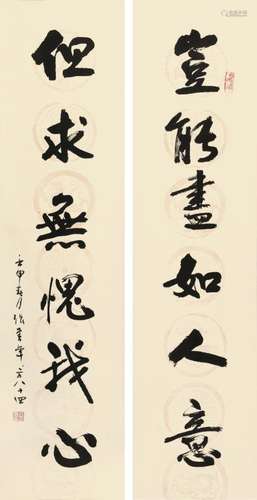 豈能盡如人意
但求無愧我心
壬申春月 八十四